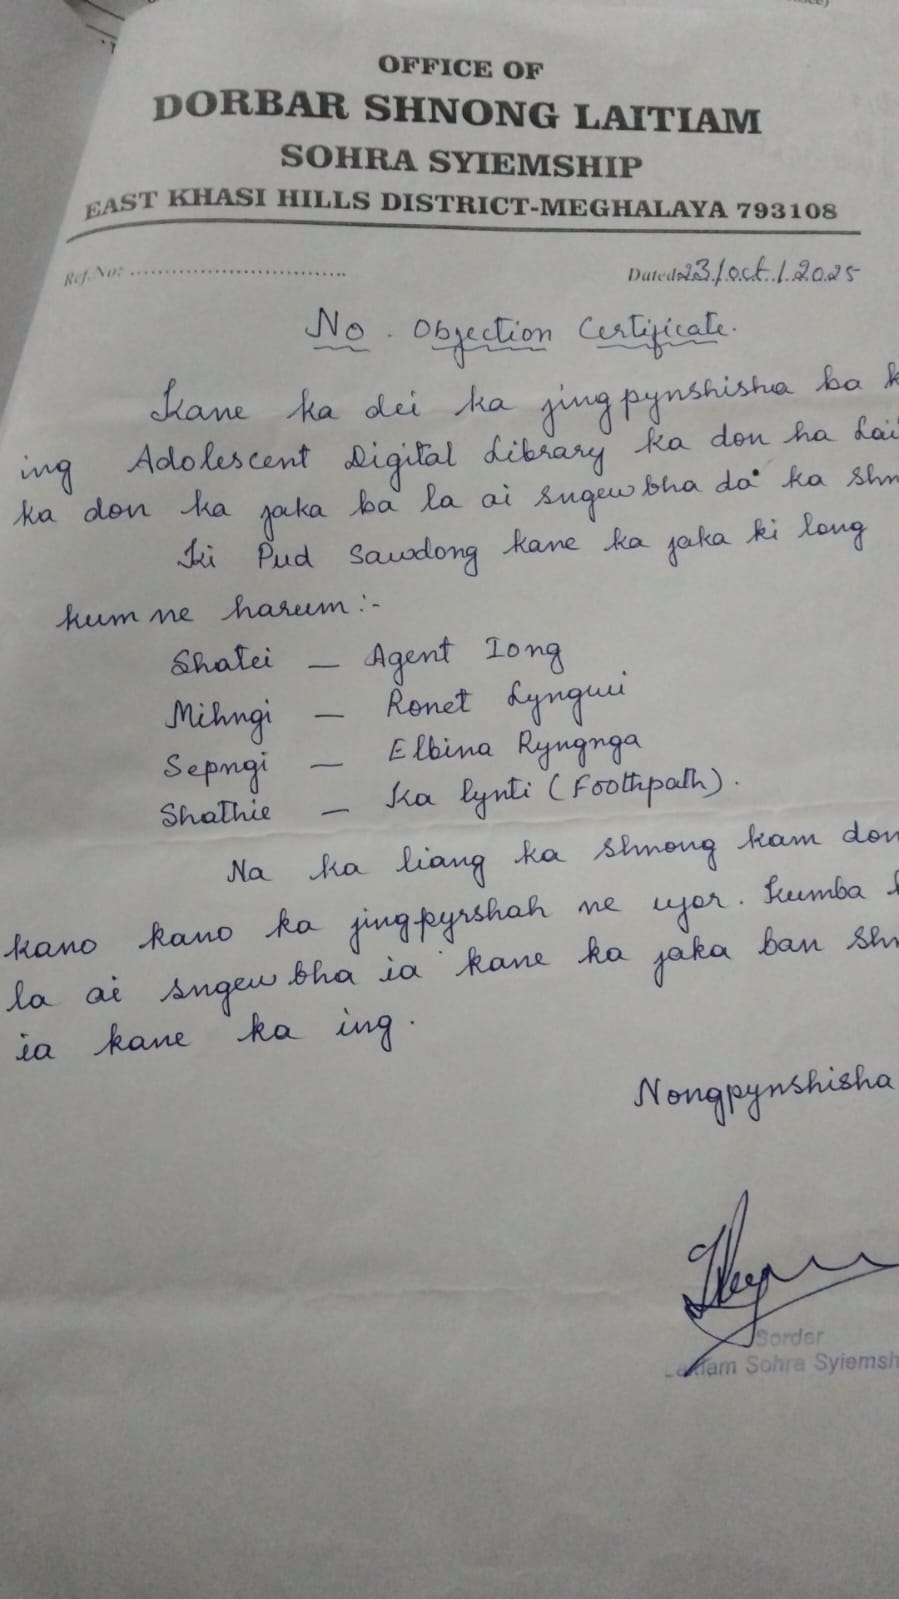 OFFICE OF
DORBAR SHNONG LAITIAM
SOHRA SYIEMSHIP
EAST KHASI HILLS DISTRICT-MEGHALAYA 793108
Ref. No: ................................
Dated 23/oct/2025
No. Objection Certificate.
Kane ka dei ka jingpynshisha ba k
ing Adolescent Digital Library ka don ha Lai
ka don ka jaka ba la ai sngewbha da ka Shn
Ki Pud Sawdong kane ka jaka ki long
kum ne harum :-
Shatei — Agent Iong
Mihngi — Ronet Lyngwi
Sepngi — Elbina Ryngnga
Shathie — Ka lynti (Foothpath).
Na ka liang ka Shnong kam don
kano kano ka jingpyrshah ne ujor. Kumba
la ai sngewbha ia kane ka jaka ban Shn
ia kane ka ing.
Nongpynshisha
Sorder
Laitiam Sohra Syiemsh